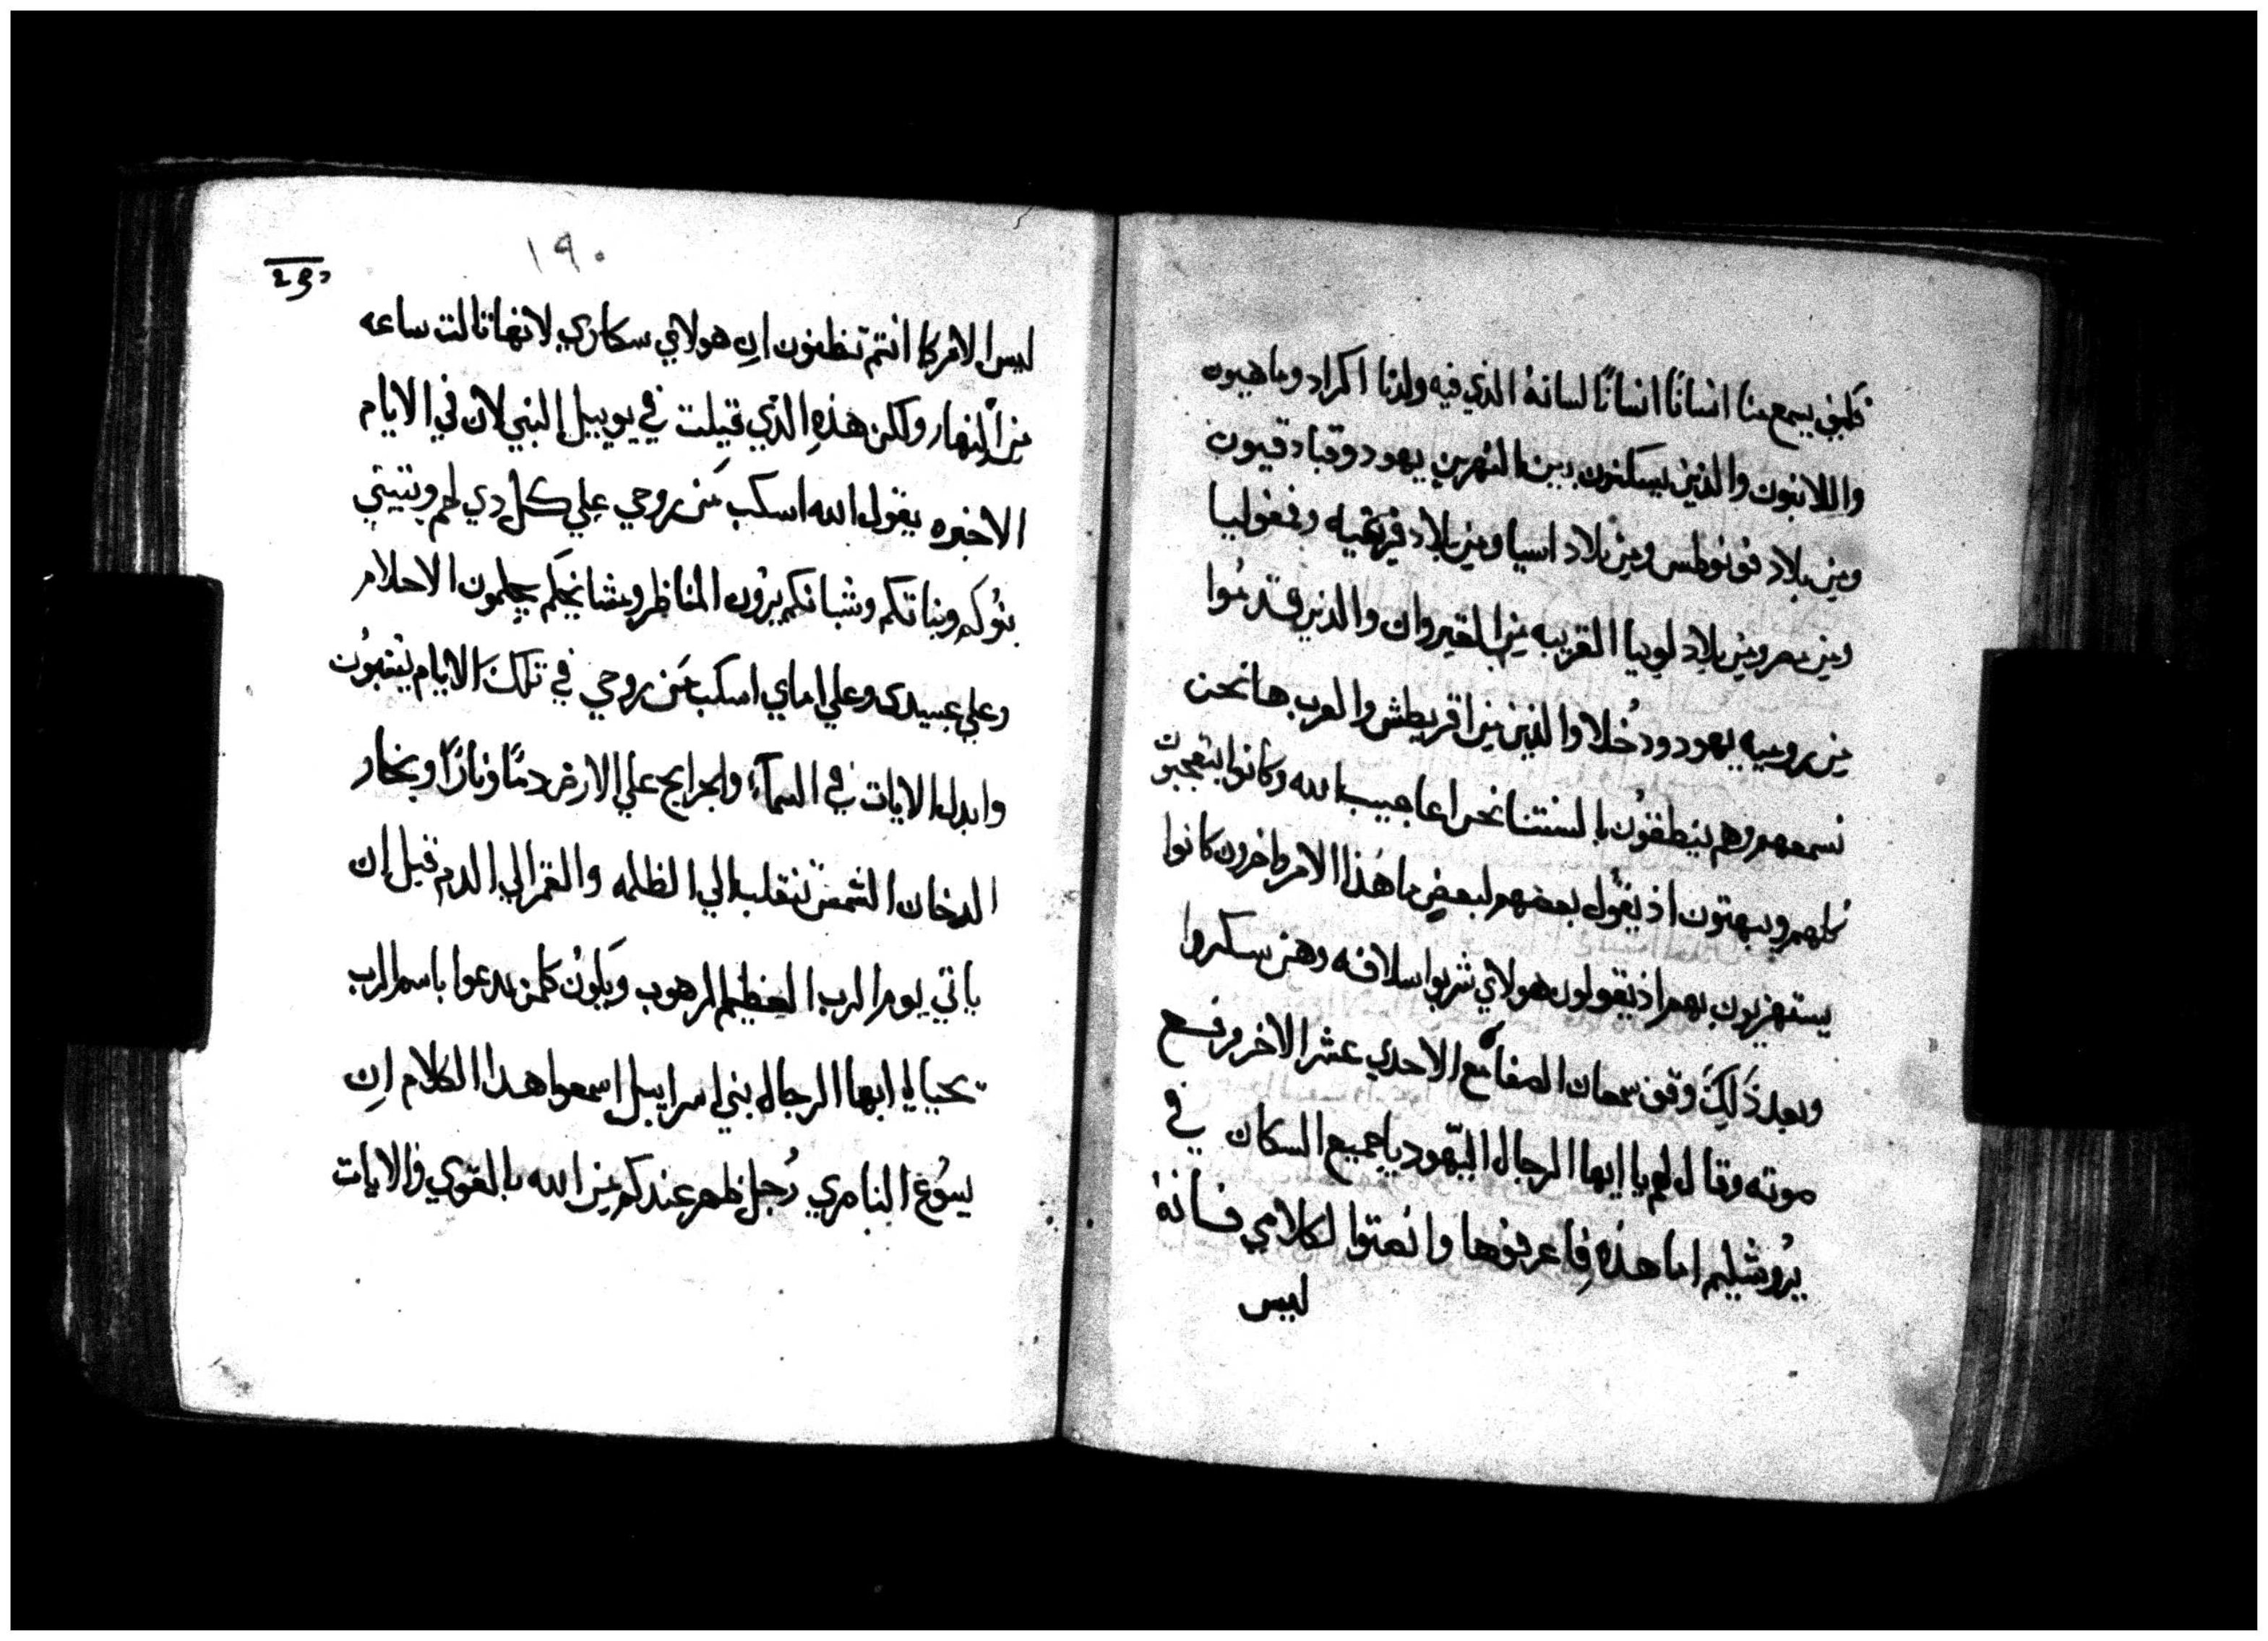 فكيف يسمع منا انسانًا انسانًا لسانهُ الذي فيه ولدنا اكراد وماهيون
واللانيون والذين يسكنون بين النهرين يهود وقبادقيون
ومِن بلاد فونوطس ومِن بلاد اسيا ومِن بلاد فريجيه وبمفوليا
ومِن مصر ومِن بلاد لوبيا القريبه مِن القيروان والذين قدمُوا
مِن روميه يهود ودُخلا والذين مِن اقريطش والعرب هانحن
نسمعهم وهم ينطقوُن بالسنتنا نحن اعاجيب الله وكانوا يتعجبون
كلهم ويبهتون اذ يقوُل بعضهم لبعضٍ ما هَذا الامر واخرون كانوا
يستهزيون بهم اذ يقولون هولاي شربوا سلافه وهم سكروا
وبعد ذَلِكَ وقف سمعان الصفا مع الاحدي عشر الاخر ورفع
صوته وقال لهم يا ايها الرجال اليهود يا جميع السكان في
يرُوشليم اما هذه فِاعرفوها وانصتوا لكلامي فانهُ
ليس
١٩٠
ليس الامر كما انتم تظنون اِن هولاي سكاري لانها تالت ساعه
مِن النهار ولكن هذهِ الذي قيلت في يوييل النبي لان في الايام
الاخيره يقول الله اسكب مَن روحي علي كل دي لحم وتتنبي
بنوُكم وبناتكم وشبانكم يرُون المناظر ومشايخكم يحلمون الاحلام
وعلي عبيدي وعلي اماي اسكب مَن روحي في تلكَ الايام يتنبوُن
وابدل الايات في السمآء والجرايح علي الارض دمًا ونارًا وبخار
الدخان الشمس تنقلب الي الظلمه والقمر الي الدم قبل ان
ياتي يوم الرب العظيم المرهوب ويَكوُن كلمن يدعوا باسم الرب
يحيا يا ايها الرجال بني اسراييل اسمعوا هدا الكلام اِن
يسوُع الناصري رُجل ظهر عندكم مِن الله بالقوي والايات